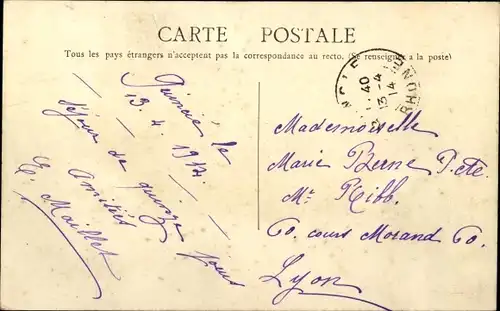 CARTE POSTALE
Tous les pays étrangers n'acceptent pas la correspondance au recto. (Se renseigner a la poste)
le
13. 4. 1914.
Séjour de quinze jours
Amitiés
E. Maillet
40
13 -4
14
RHONE
Mademoiselle
Marie Berne
Mr Ribb.
60. cours Morand 60.
Lyon